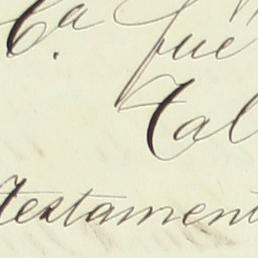 Cª fué
Tal
testament